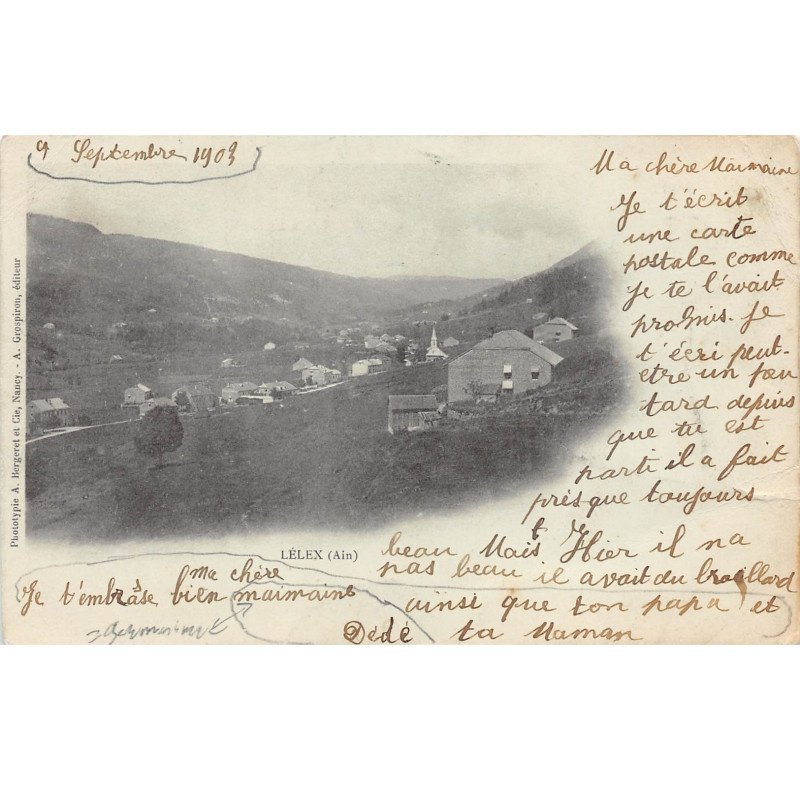 9 Septembre 1903
Ma chère Maimaine
Je t'écrit
une carte
postale comme
je te l'avait
promis. je
t'écri peut-
etre un peu
tard depuis
que tu est
parti il a fait
présque toujours
beau Mais Hier il na
pas beau il avait du brouillard
ainsi que ton papa et
ta Maman
Je t'embrasse bien ma chère
maimaine
Dédé
LÉLEX (Ain)
Phototypie A. Bergeret et Cie, Nancy. - A. Grospiron, éditeur